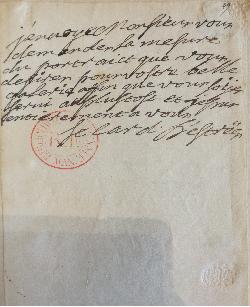 j'envoye Monsieur vous
demander la mesure
du portraict que vous
desirez pour vostre belle
galerie affin que vous soiez
servi au plus tost et je suis
entierement a vous
le Card